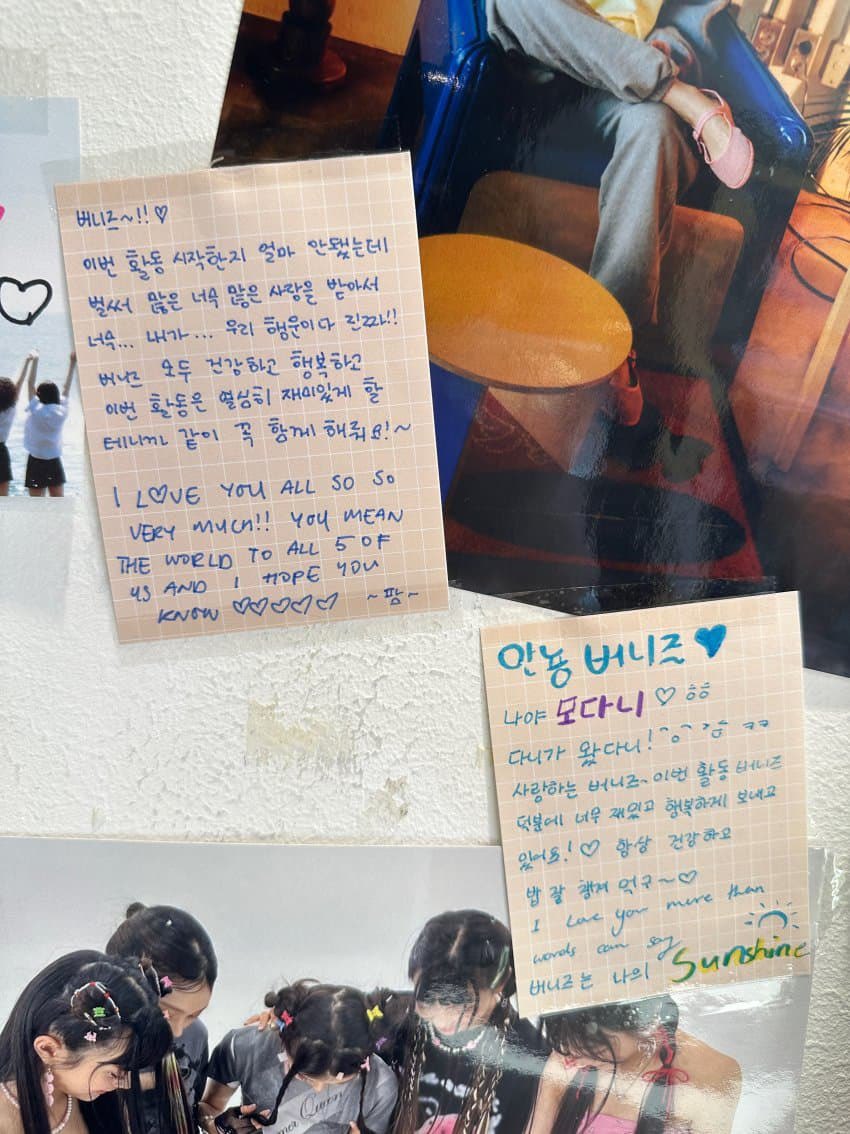 버니즈~!!♡
이번 활동 시작한지 얼마 안됐는데
벌써 많은 너무 많은 사랑을 받아서
너무... 내가... 우리 행운이다 진짜!!
버니즈 모두 건강하고 행복하고
이번 활동은 열심히 재미있게 할
테니까 같이 꼭 함께 해줘요!~
I LOVE YOU ALL SO SO
VERY MUCH!! YOU MEAN
THE WORLD TO ALL 5 OF
US AND I HOPE YOU
KNOW ♡♡♡♡♡ ~팜~
안뇽 버니즈 ♥
나야 모다니 ♡ ㅎㅎ
다니가 왔다니! ㅋㅋ
사랑하는 버니즈~ 이번 활동 버니즈
덕분에 너무 재밌고 행복하게 보내고
있어요! ♡ 항상 건강하고
밥 잘 챙겨 먹구~♡
I love you more than
words can say
버니즈는 나의 Sunshine